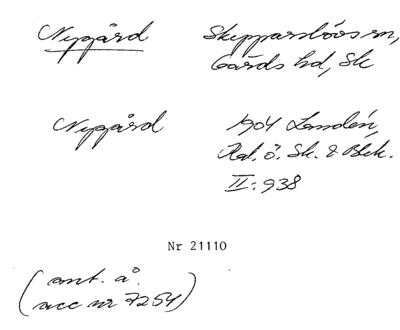 Nygård Skepparslövs sn,
Gärds hd, Sk
Nygård 1904 Landén,
Kat. ö. Sk. & Blek.
II: 938
Nr 21110
(ant. å
acc nr 7254)